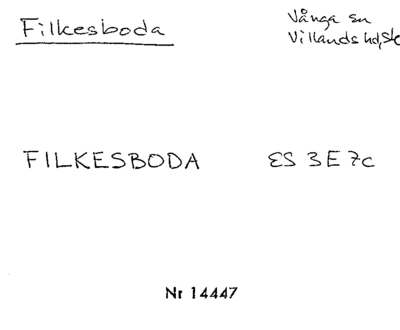 Filkesboda
Vånga sn
Villands hd, Sk
FILKESBODA ES 3E7c
Nr 14447